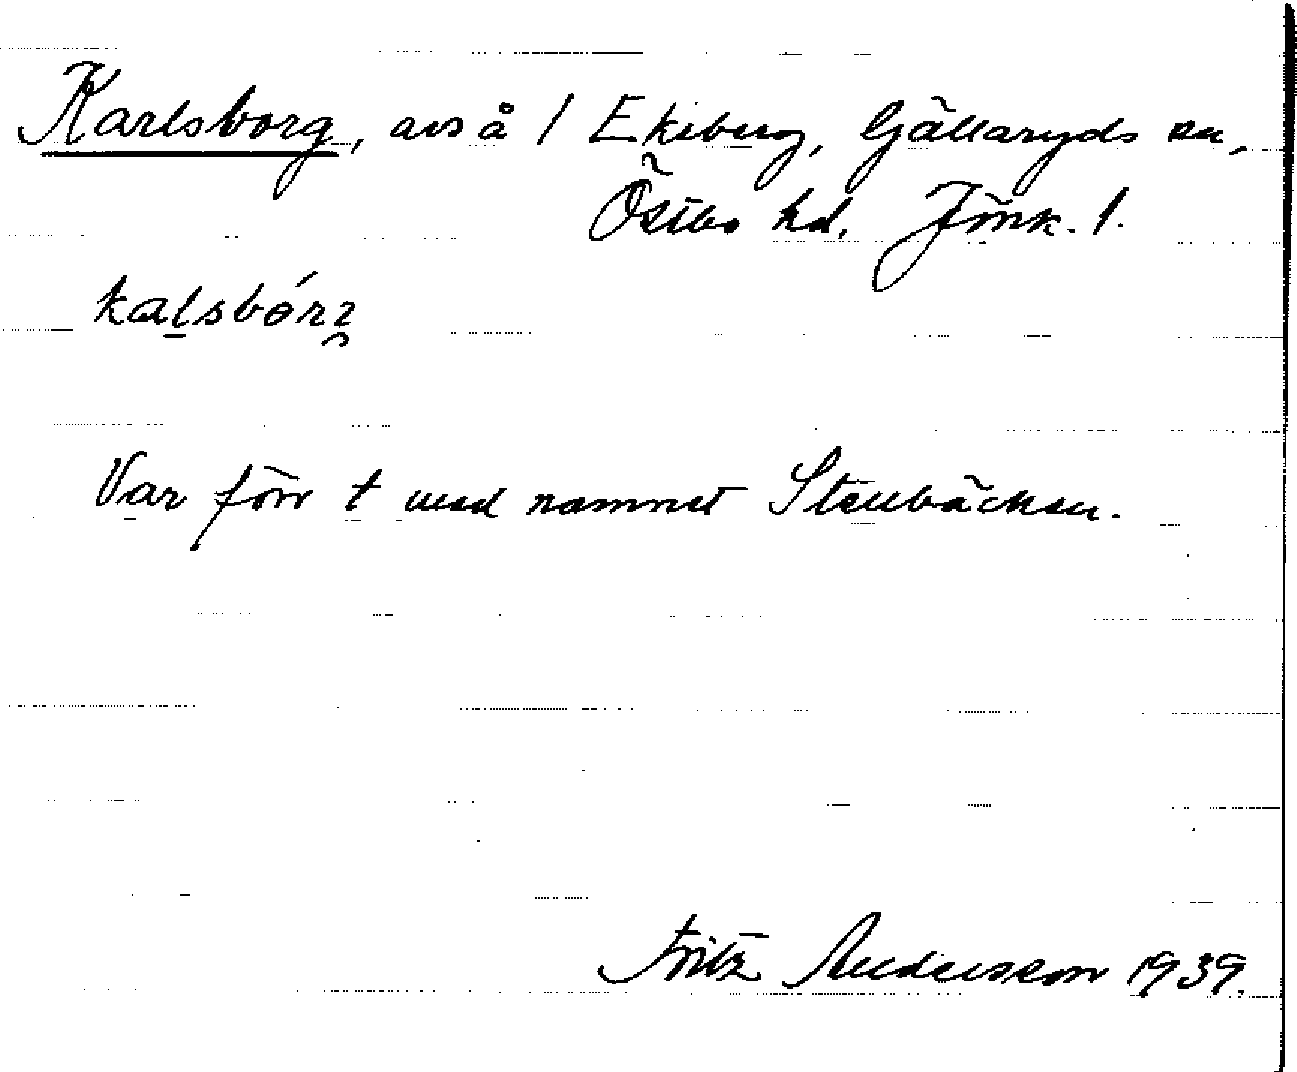 Karlsborg, avs å 1 Ekeberg, Gällaryds sn,
Östbo hd. Jönk. l.
kaḻsbórꝛ
Var förr t med namnet Stenbäcken.
Fritz Andersson 1939.